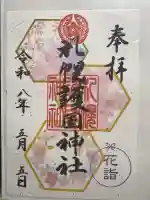 奉拝
札幌護国神社
令和八年五月五日
花詣